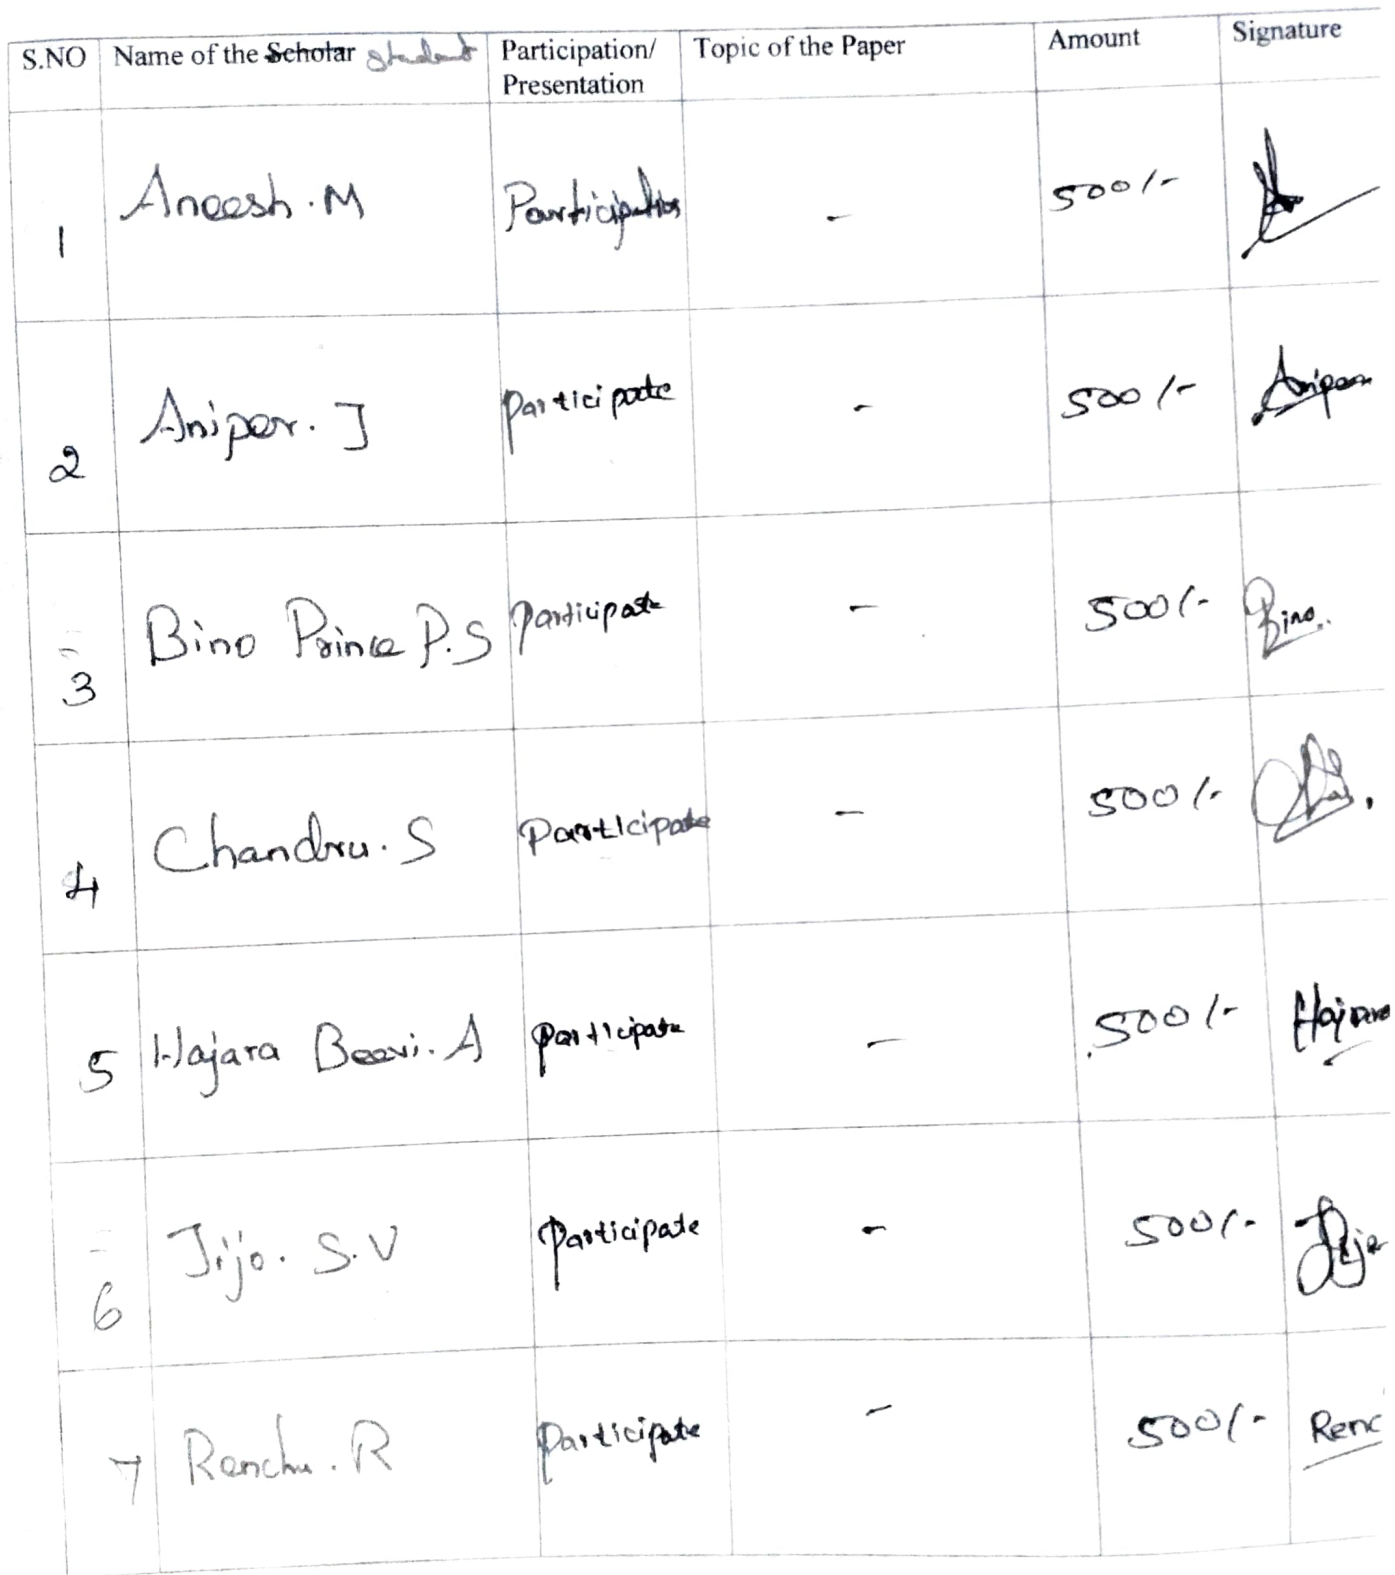 S.NO Name of the Scholar student Participation/ Presentation Topic of the Paper Amount Signature
1 Aneesh.M Participation - 500/-
2 Aniper.J Participate - 500/- Aniper
3 Bino Prince P.S Participate - 500/- Bino.
4 Chandru.S Participate - 500/-
5 Hajara Beevi.A Participate - 500/- Hajara
6 Jijo.S.V Participate - 500/- Jijo
7 Renchu.R Participate - 500/- Renc